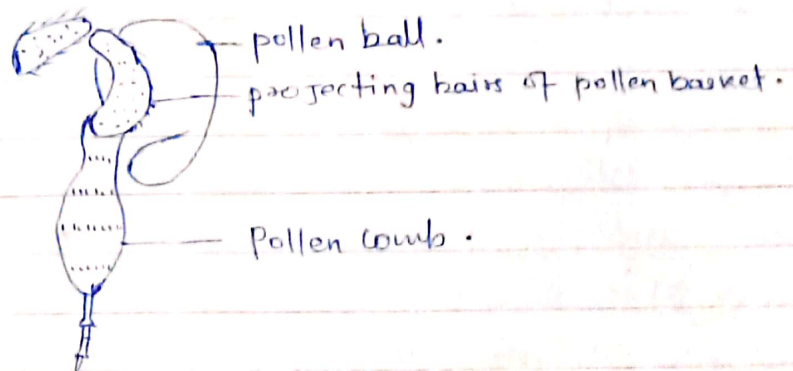 pollen ball.
projecting hairs of pollen basket.
Pollen comb.